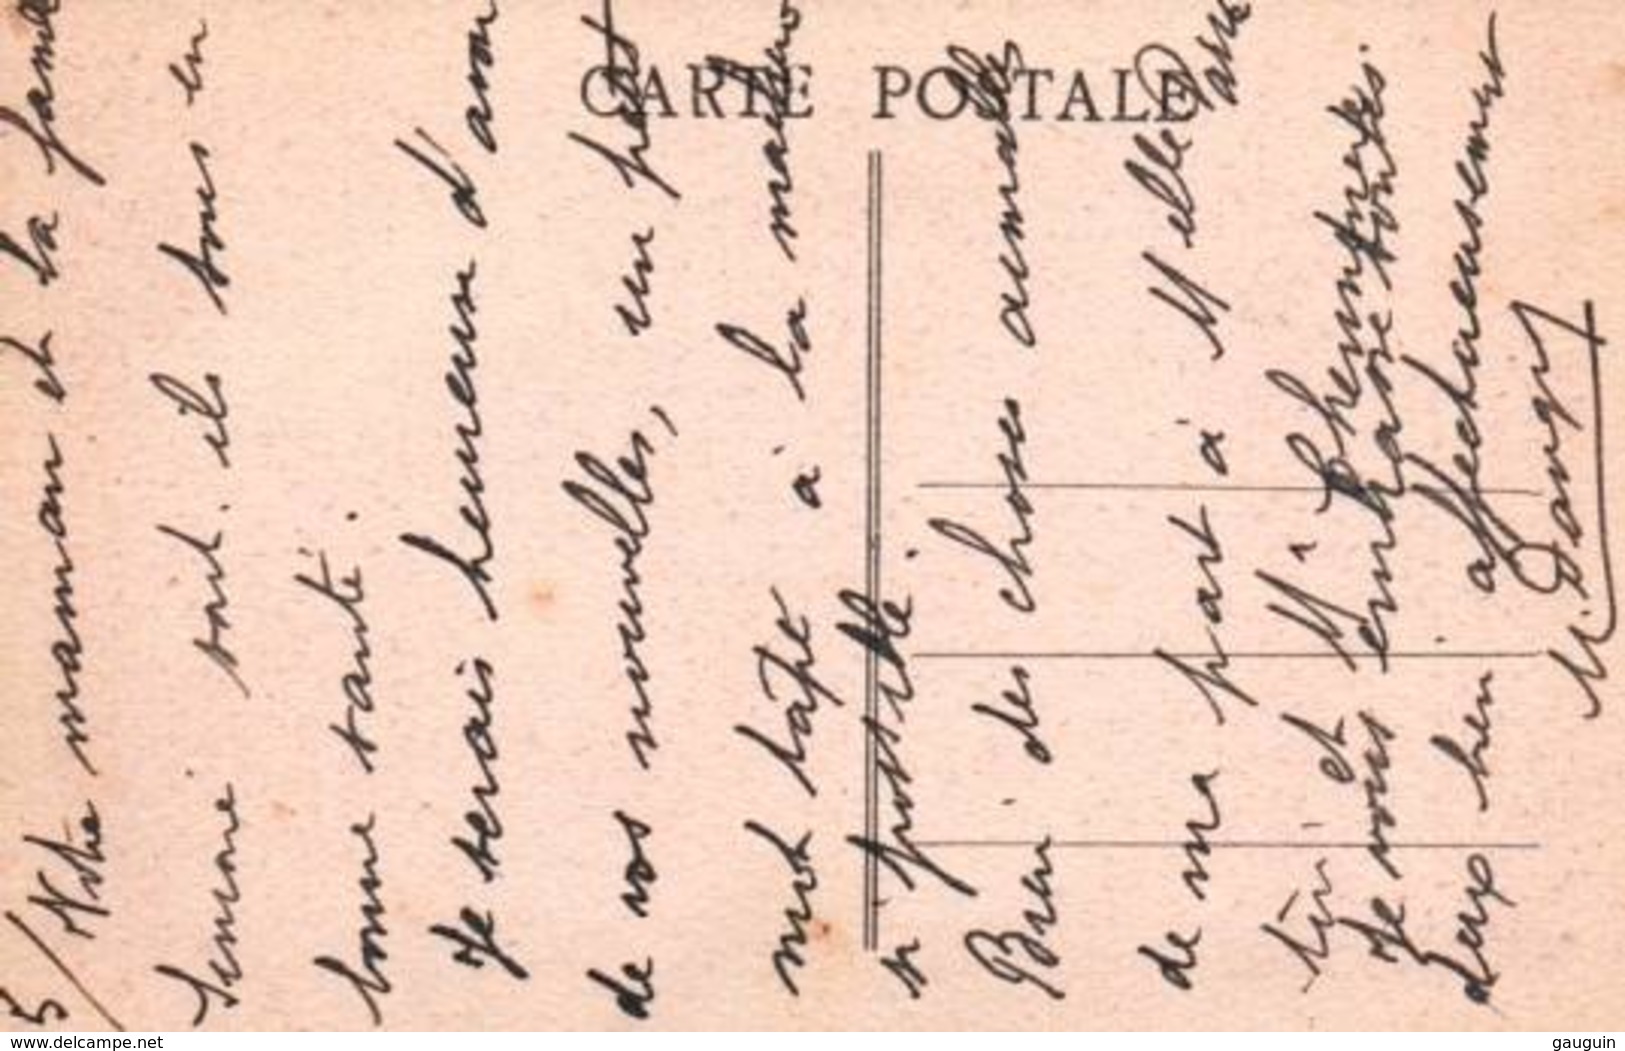 CARTE POSTALE
5/ Votre maman et la fama
Simone sont-ils tous en
bonne santé.
Je serais heureuse d'avoir
de vos nouvelles, un petit
mot tapé à la machine
si possible.
Bien des choses aimables
de ma part à Melle
tin et Mr
Je vous embrasse toutes
deux bien affectueusement
M.
www.delcampe.net
gauguin